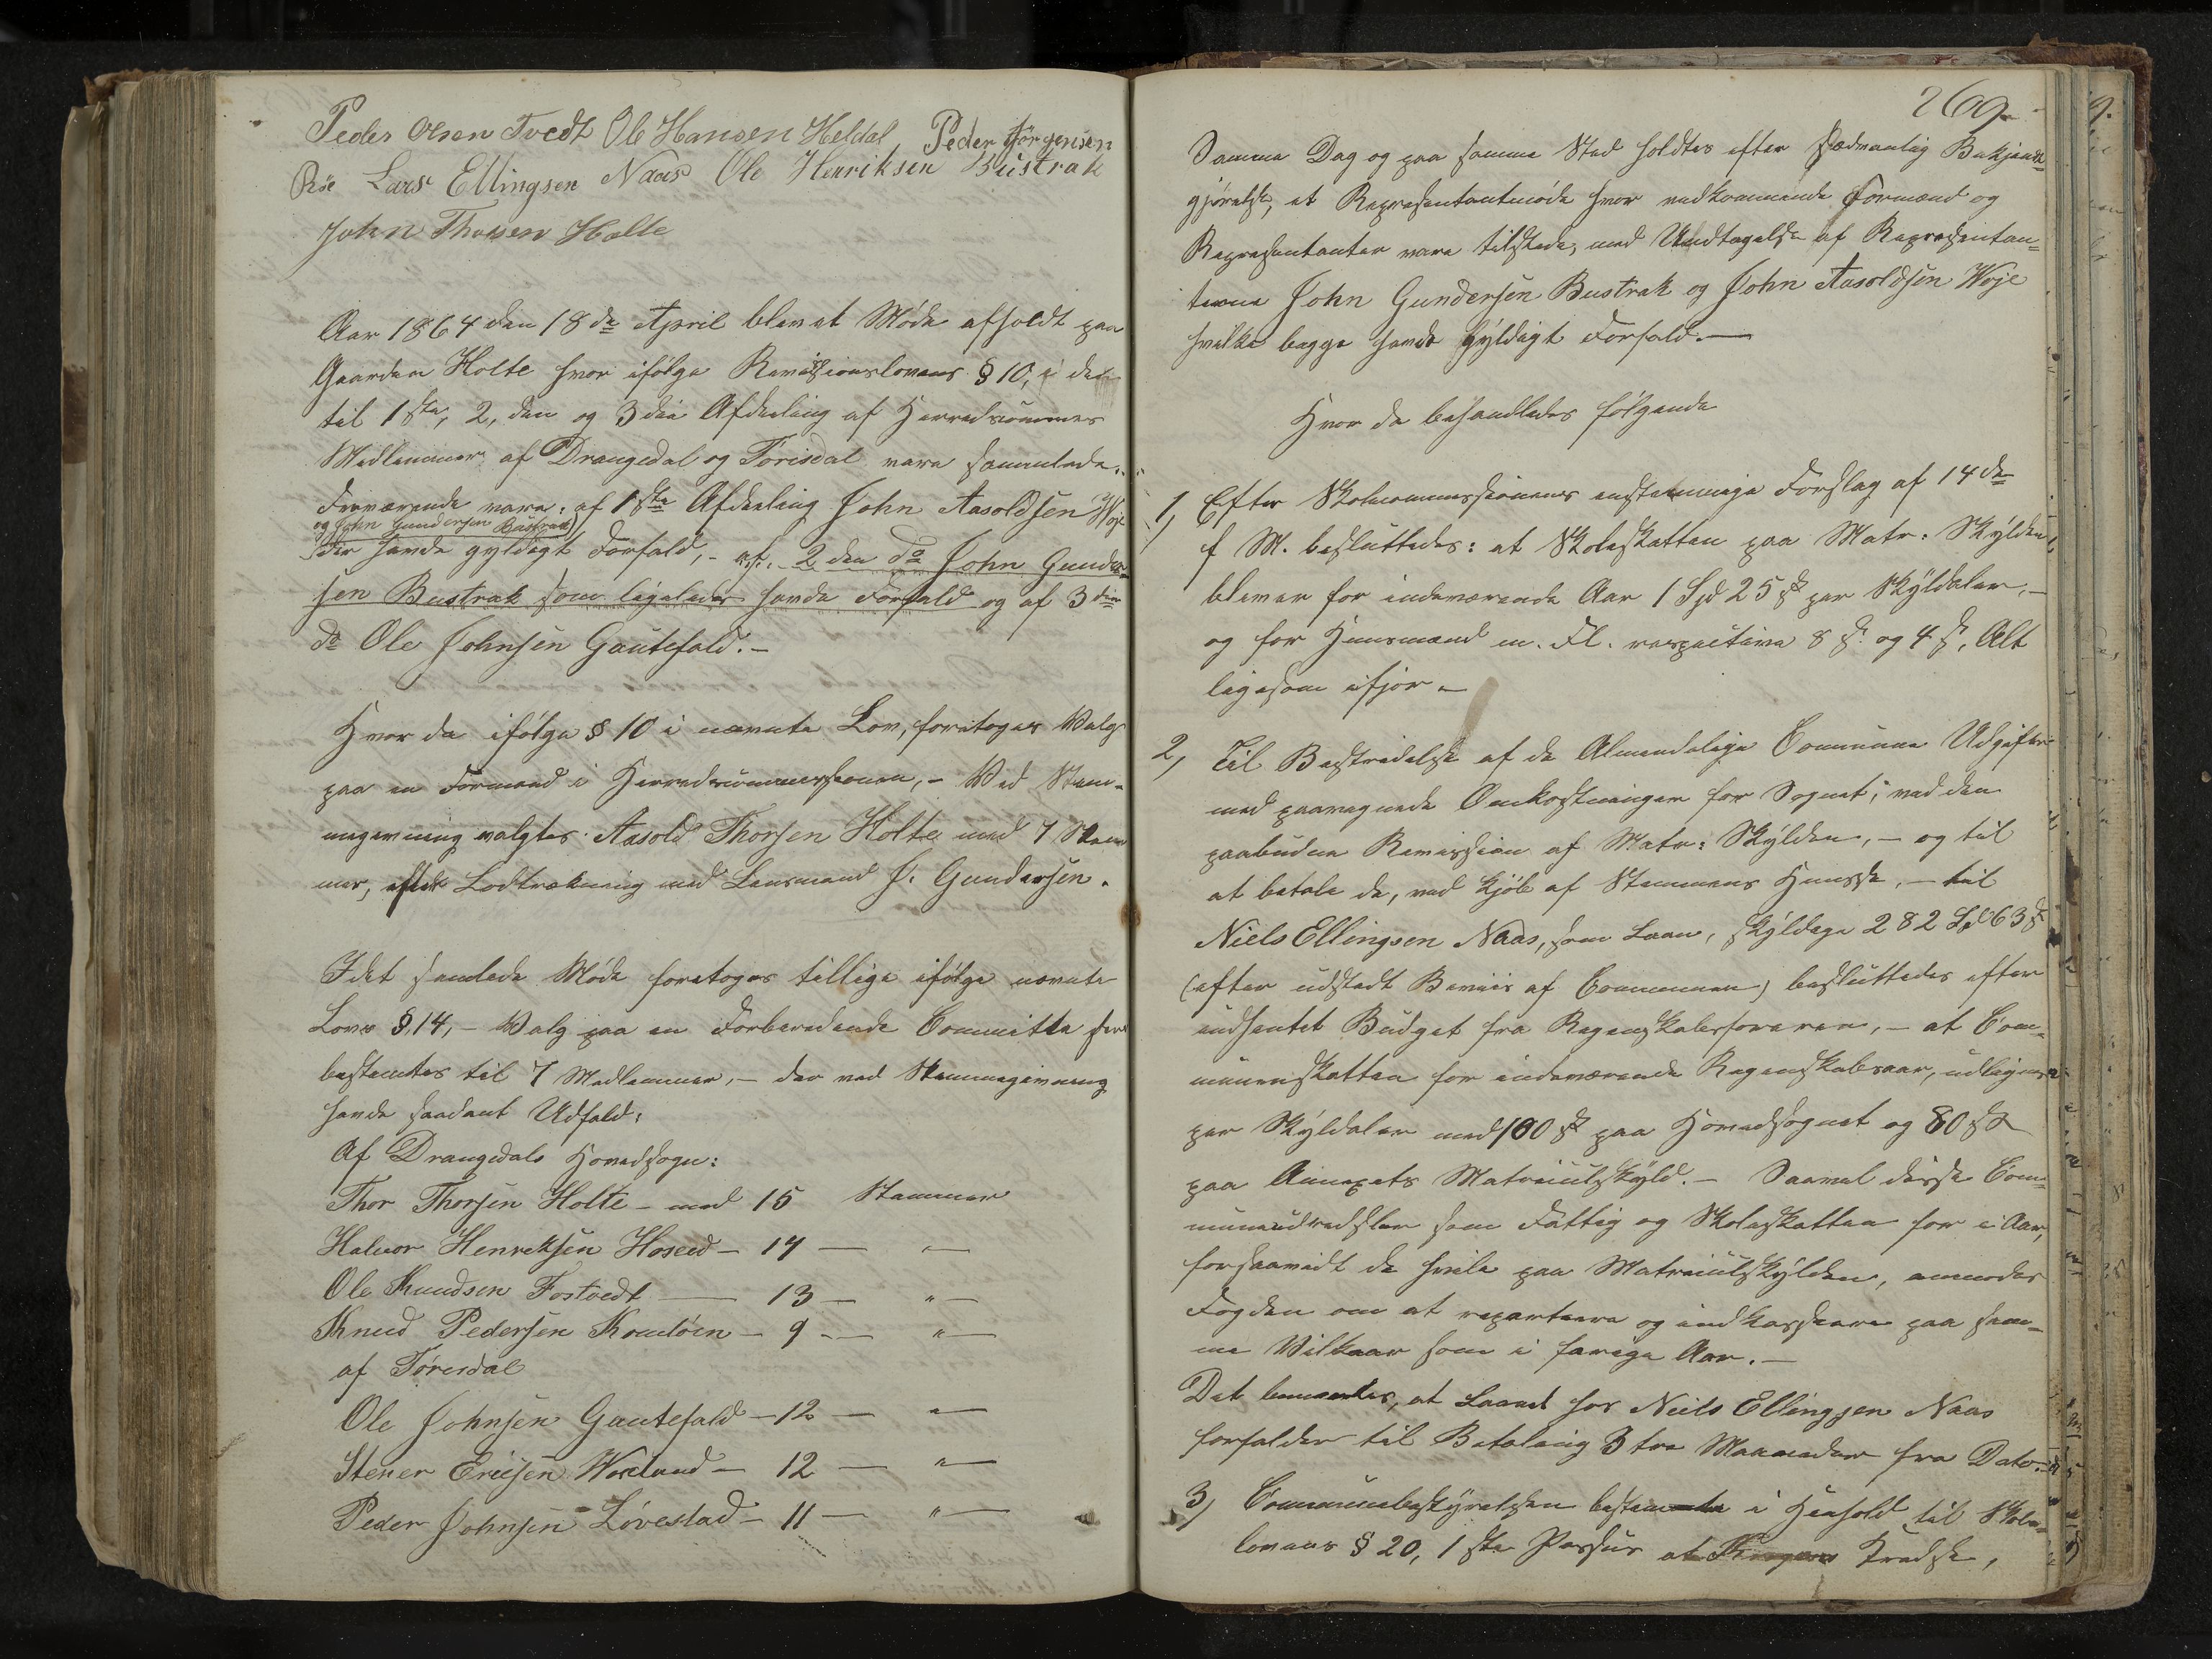 Peder Olsen Tvedt Ole Hansen Heldal Peder Jörgensen
Röe Lars Ellingsen Naas Ole Henriksen Bustrak
John Thorsen Holte
Aar 1864 den 18de April blev et Möde afholdt paa
Gaarden Holte hvor ifölge Revisionslovens § 10, i den
til 1ste, 2, den og 3die Afdeling af Herreds
Medlemmer af Drangedal og Törisdal vare samlede.
Fraværende vare: af 1ste Afdeling John Aasoldsen Woje
og John Gundersen Bustrak
der havde gyldigt Forfald, - af 2den do John Gunder-
sen Bustrak som ligeledes havde Forfald og af 3die
do Ole Johnsen Gautefald. -
Hvor da ifölge § 10 i nævnte Lov, foretoges Valg
paa en Formand i Herredscommissionen, - Ved Stem-
megivning valgtes Aasold Thorsen Holte med 7 Stem
mer, efter Lodtrækning med Lensmand J. Gundersen.
I det samlede Möde foretoges tillige ifölge nævnte
Lovs § 14, - Valg paa en Forberedende Committe som
bestemtes til 7 Medlemmer, - der ved Stemmegivning
havde saadant Udfald:
Af Drangedals Hovedsogn:
Thor Thorsen Holte - med 15 Stemmer
Halvor Henriksen Hoseid - 14 — " —
Ole Knudsen Fostvedt — 13 — " —
Knud Pedersen Komlöen - 9 - — " —
af Törisdal
Ole Johnsen Gautefald - 12 — " —
Stener Ericsen Woxland - 12 — " —
Peder Johnsen Lövestad - 11 — " —
269.
Samme Dag og paa samme Sted holdtes efter sædvanlig Bekjendt-
gjörelse, et Representantmöde hvor vedkommende Formænd og
Representanter vare tilstede, med Undtagelse af Represendan-
terne John Gundersen Bustrak og John Aasoldsen Woje
hvilke begge havde gyldigt Forfald. —
Hvor da behandledes fölgende
1, Efter Skolecommissionens enstemmige Forslag af 14de
f M. besluttedes: at Skoleskatten paa Matr: Skylden
bliver for indeværende Aar 1 Spd 25 s per Skyldaler, -
og for Huusmænd m. Fl. respective 8 s og 4 s, Alt
ligesom ifjor. -
2, Til Bestridelse af de Almindelige Commune Udgifter
med paaregnede Omkostninger for Sognet, ved den
paabudne Revission af Matr: Skylden, - og til
at betale de, ved Kjöb af Huusse, - til
Niels Ellingsen Naas, som Laan, skyldige 282 Spd 63 s
(efter udstedt Beviis af Communen) besluttedes efter
indhentet Budget fra Regnskabsföreren, - at Com-
muneskatten for indeværende Regnskabsaar, udlignes
per Skyldaler med 100 s paa Hovedsognet og 80 s
paa Annexets Matriculskyld. - Saavel disse Com-
muneudredsler som Fattig og Skoleskatten for i Aar,
forsaavidt de hvile paa Matriculskylden, anmodes
Fogden om at repartere og indkassere paa sam-
me Vilkaar som i forrige Aar. -
Det bemærkes, at Laanet hos Niels Ellingsen Naas
forfalder til Betaling 3 tre Maaneder fra Dato.
3, Communebestyrelsen bestemte i Henhold til Skole-
lovens § 20, 1ste Passus at Kredse,